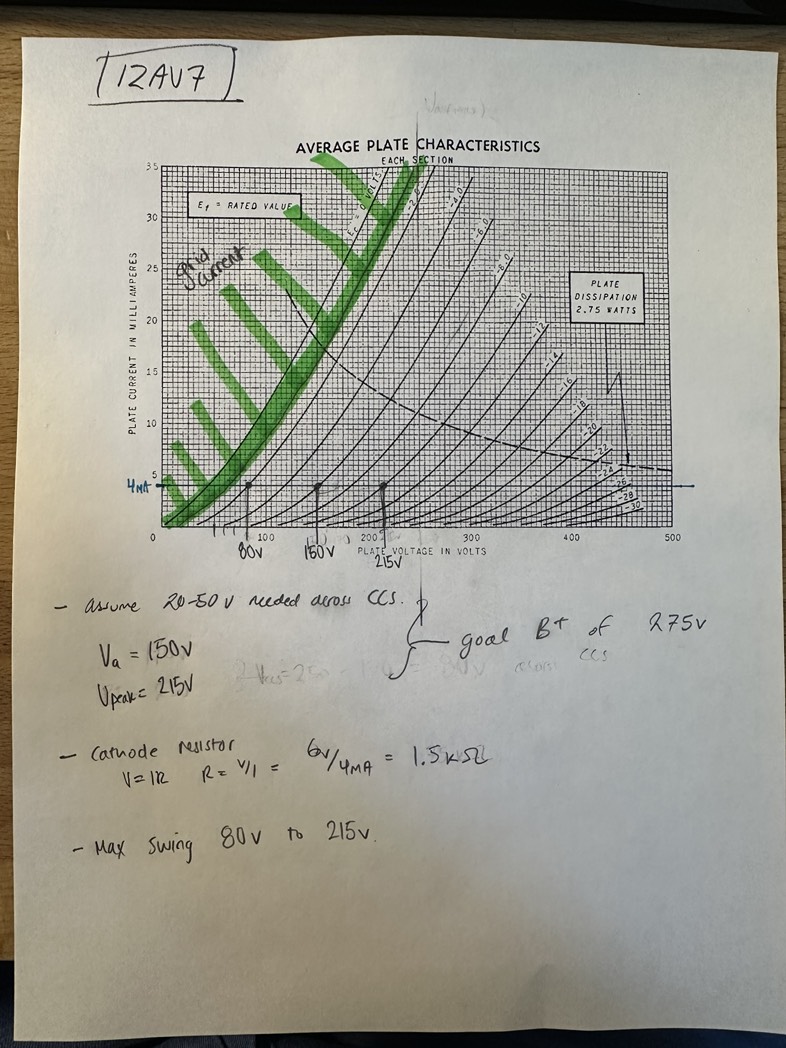 12AV7
AVERAGE PLATE CHARACTERISTICS
EACH SECTION
35
30
25
20
15
10
5
0
PLATE CURRENT IN MILLIAMPERES
Ef = RATED VALUE
grid
current
Ec = 0 VOLTS
-2.0
-4.0
-6.0
-8.0
-10
-12
-14
-16
-18
-20
-22
-24
-26
-28
-30
PLATE
DISSIPATION
2.75 WATTS
4MA
100
200
300
400
500
80V
150V
215V
PLATE VOLTAGE IN VOLTS
- Assume 20-50 V needed across CCS.
Va = 150V
Vpeak = 215V
goal B+ of 275V
- Cathode resistor
V=IR R= V/I = 6V/4MA = 1.5KΩ
- Max swing 80V to 215V.